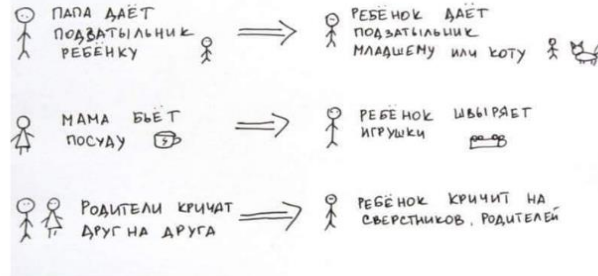 ПАПА ДАЁТ
ПОДЗАТЫЛЬНИК
РЕБЁНКУ
РЕБЁНОК ДАЁТ
ПОДЗАТЫЛЬНИК
МЛАДШЕМУ ИЛИ КОТУ
МАМА БЬЁТ
ПОСУДУ
РЕБЁНОК ШВЫРЯЕТ
ИГРУШКИ
РОДИТЕЛИ КРИЧАТ
ДРУГ НА ДРУГА
РЕБЁНОК КРИЧИТ НА
СВЕРСТНИКОВ, РОДИТЕЛЕЙ